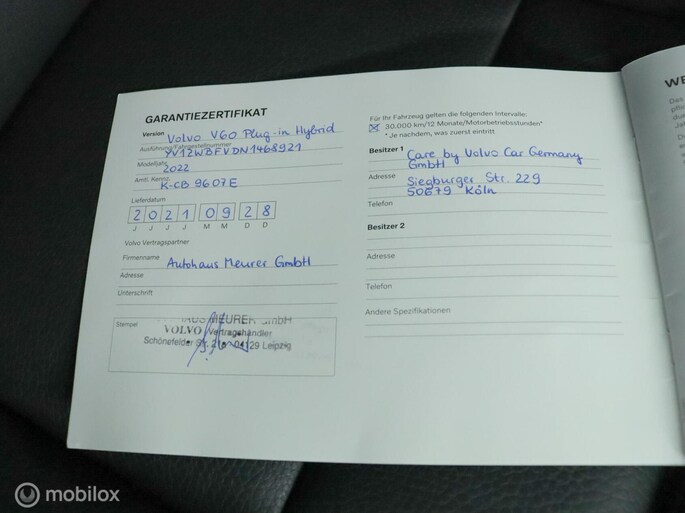 GARANTIEZERTIFIKAT
Version Volvo V60 Plug-in Hybrid
Ausführung/Fahrgestellnummer YV12WBFVDN1468921
Modelljahr 2022
Amtl. Kennz. K-CB 9607E
Lieferdatum
2 0 2 1 0 9 2 8
J J J J M M D D
Volvo Vertragspartner
Firmenname Autohaus Meurer GmbH
Adresse
Unterschrift
Stempel
MEURER GmbH
VOLVO Vertragshändler
Schönefelder Str. 04129 Leipzig
Für Ihr Fahrzeug gelten die folgenden Intervalle:
30.000 km/12 Monate/Motorbetriebsstunden*
*Je nachdem, was zuerst eintritt
Besitzer 1 Care by Volvo Car Germany
GmbH
Adresse Siegburger Str. 229
50679 Köln
Telefon
Besitzer 2
Adresse
Telefon
Andere Spezifikationen
WE
Das
mobilox